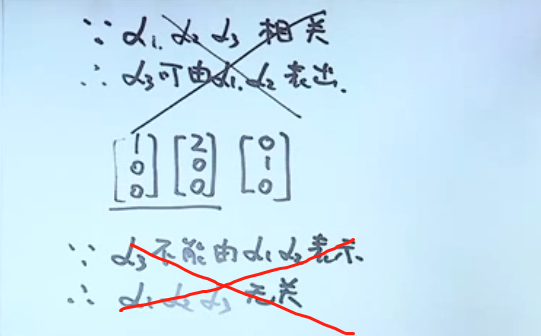 ∵ α₁. α₂ α₃ 相关
∴ α₃可由α₁. α₂ 表出.
[1 0 0] [2 0 0] [0 1 0]
∵ α₃不能由α₁ α₂ 表示.
∴ α₁ α₂ α₃ 无关